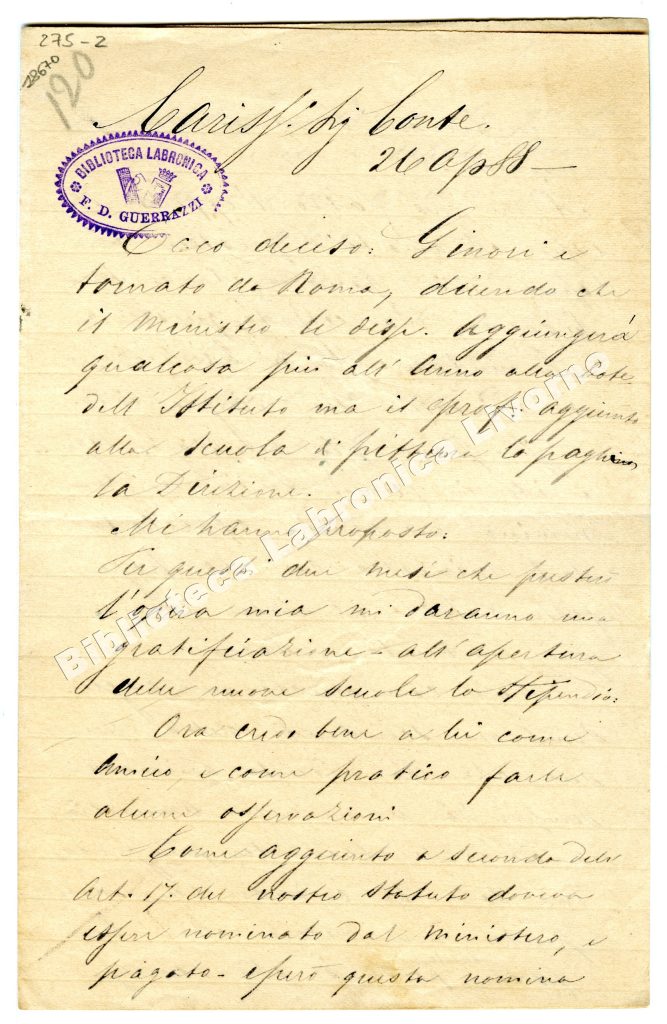 275-2
28670
120
Cariss. Sig Conte.
26 Ap 88 -
BIBLIOTECA LABRONICA
F. D. GUERRAZZI
Ecco deciso: Ginori è
tornato da Roma, dicendo che
il Ministro li disse. Aggiungerà
qualcosa più all' Anno alla Dote
dell' Istituto ma il prof. aggiunto
alla scuola di pittura lo paghino
la Direzione.
Mi hanno proposto:
Per questi due mesi che presterò
l'opera mia mi daranno una
gratificazione - all' apertura
delle nuove scuole lo stipendio:
Ora credo bene a lei come
amico, e come pratico farle
alcune osservazioni
Come aggiunto a seconda dell'
Art. 17. del nostro Statuto doveva
essere nominato dal Ministero, e
pagato - però questa nomina
Biblioteca Labronica Livorno